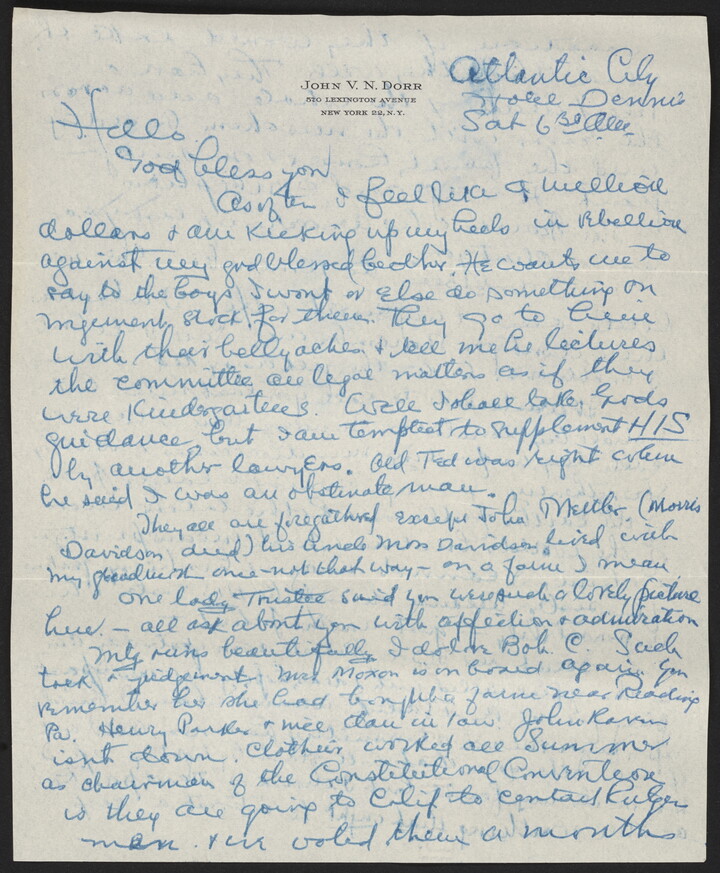 JOHN V. N. DORR
510 LEXINGTON AVENUE
NEW YORK 22, N.Y.
Atlantic City
Hotel Dennis
Sat 6 30 AM
Hallo
God bless you
As of 7 I feel like a million
dollars & am kicking up my heels in rebellion
against my god blessed brother. He wants me to
say to the boys I wont or else do something on
stock for them. They go to
with their bellyaches & tell me he lectures
the committee on legal matters as if they
were Kindergartners. Well I shall take Gods
guidance but I am tempted to supplement HIS
by another lawyers. Old Ted was right when
he said I was an obstinate man.
They all are foregathered except John Mettler (Morris
Davidson died) his uncle Moss Davidson lived with
my once - not that way - on a farm I mean
One lady Trustee said you were such a lovely picture
here. - all ask about you with affection & admiration
Mtg runs beautifully I do love Bob. C. Such
tact & judgement. Mrs Moxon is on board again You
remember her she had bought a farm near Reading
Pa. Henry Parker & nice dau in law. John Raven
isnt down. Clothier worked all Summer
as chairman of the Constitutional Convention
is they are going to Calif to contact Rutgers
men. & we voted them a months